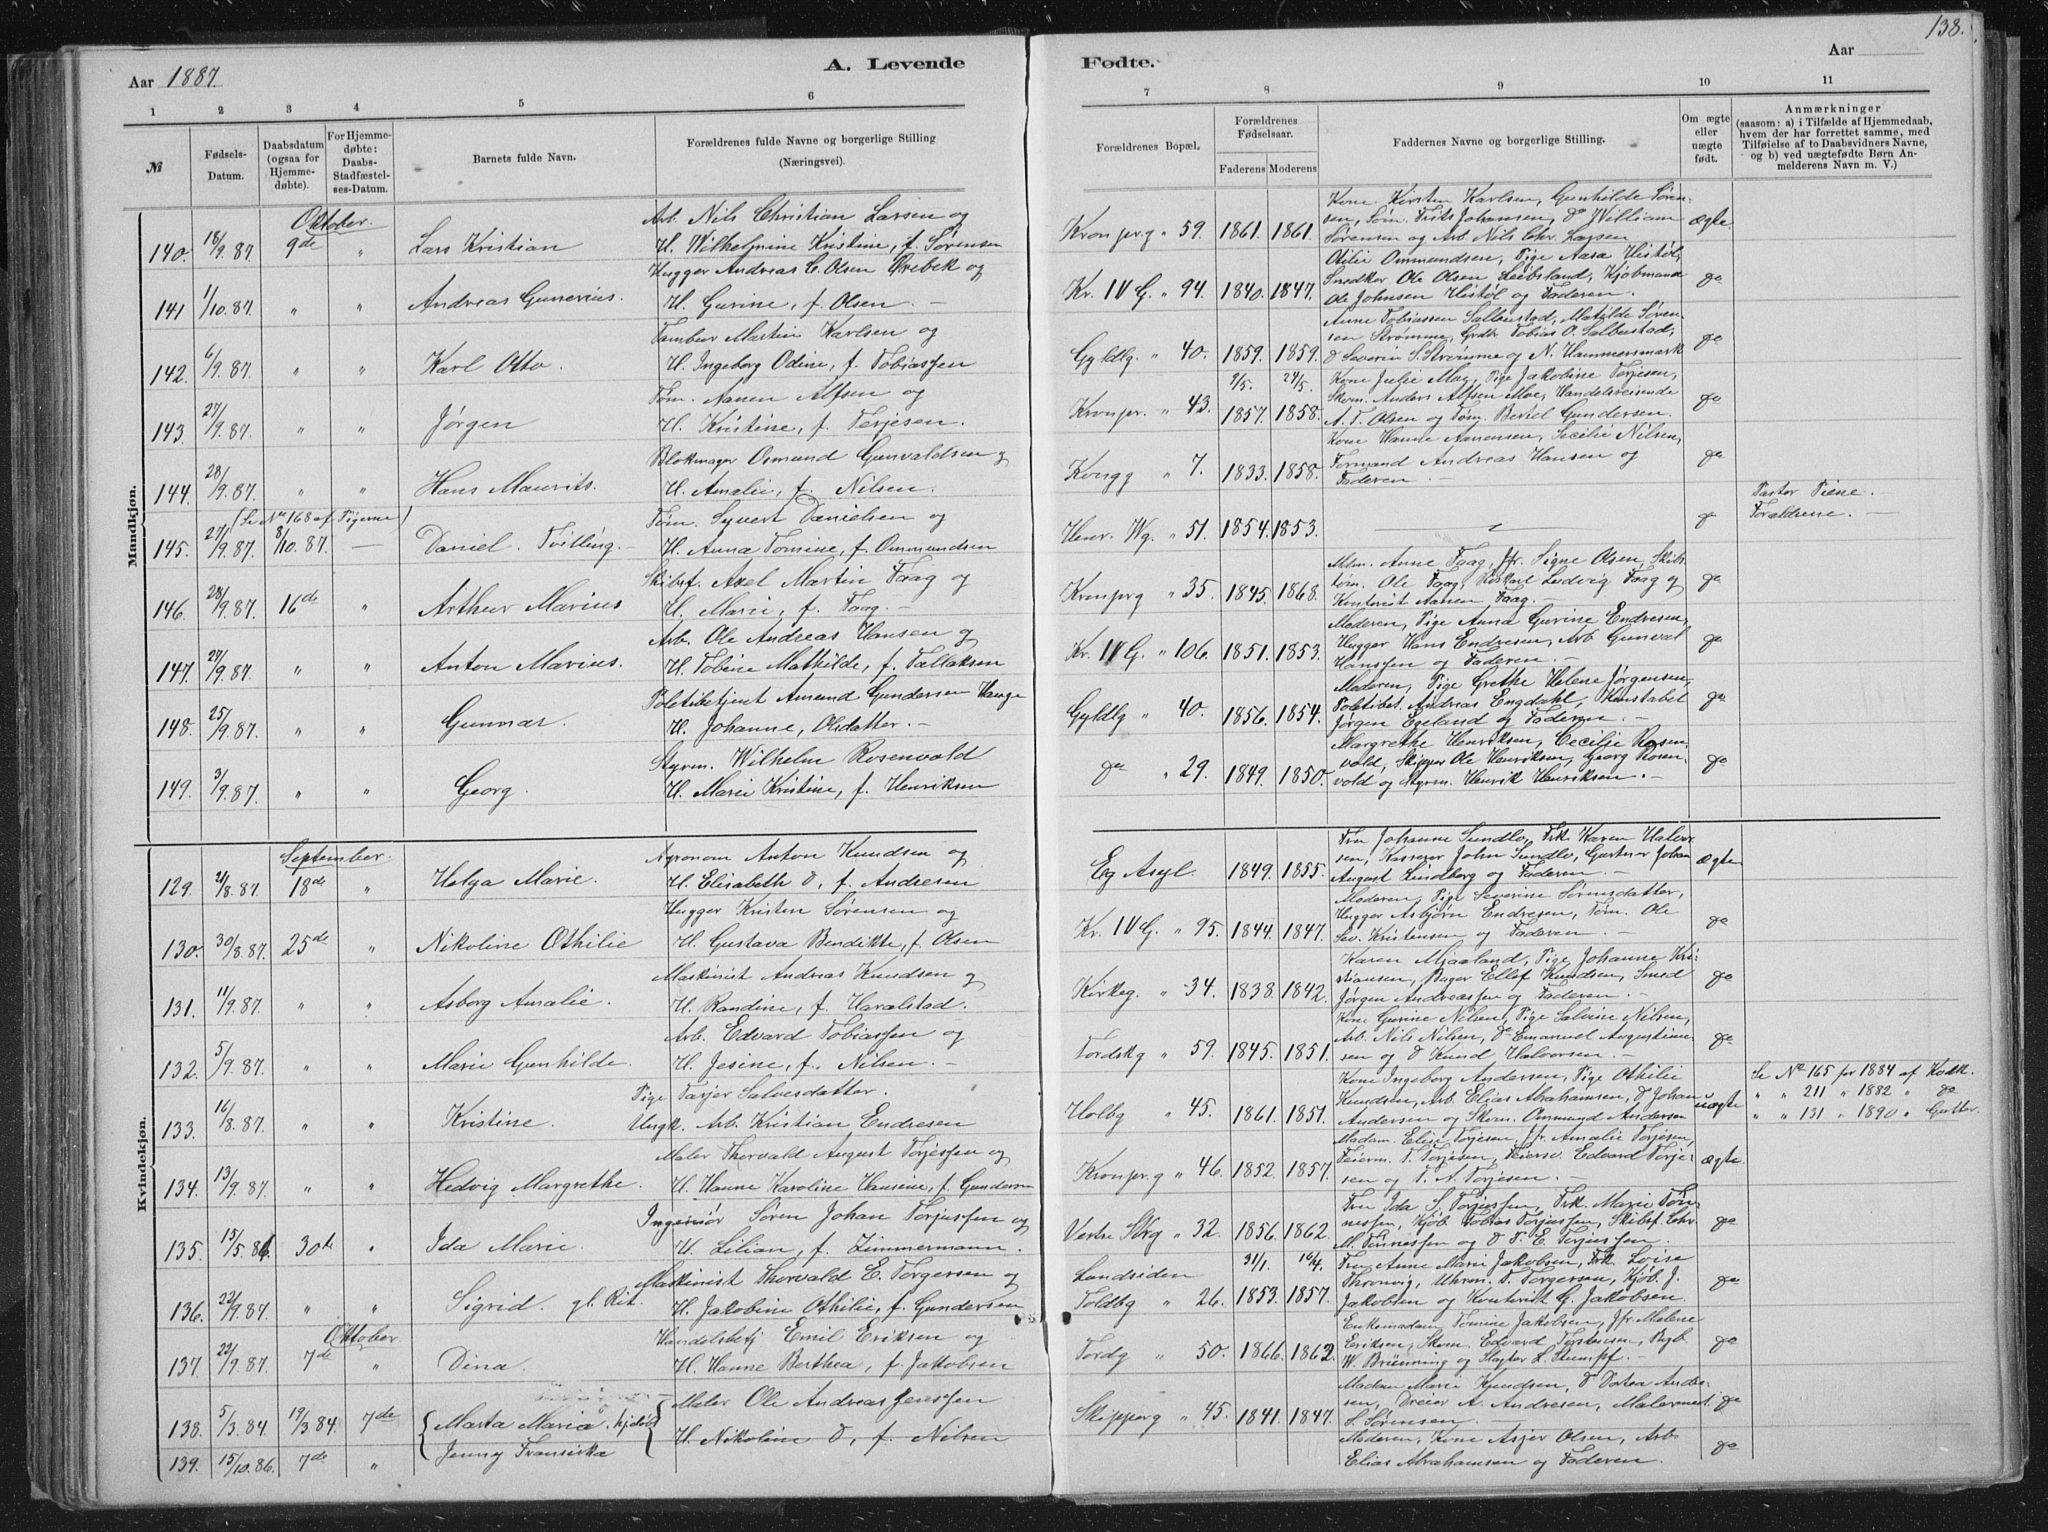 138.
Aar 1887.
A. Levende Fødte.
Aar
1 2 3 4 5 6 7 8 9 10 11
№
Fødsels-Datum.
Daabsdatum (ogsaa for Hjemme-døbte).
For Hjemme-døbte: Daabs-Stadfæstel-ses-Datum.
Barnets fulde Navn.
Forældrenes fulde Navne og borgerlige Stilling (Næringsvei).
Forældrenes Bopæl.
Forældrenes Fødselsaar.
Faderens Moderens
Faddernes Navne og borgerlige Stilling.
Om ægte eller uægte født.
Anmærkninger
(saasom: a) i Tilfælde af Hjemmedaab, hvem der har forrettet samme, med Tilføielse af to Daabsvidners Navne, og b) ved uægtefødte Børn An-melderens Navn m. V.)
Mandkjøn.
Oktober.
140. 18/9.87. 9de " Lars Kristian
Arb. Nils Christian Larsen og
H. Wilhelmine Kristine, f. Sørensen
Kronprg " 59. 1861. 1861.
Kone Kirsten Karlsen, Gunhilde Søren-
sen, Søm. Frits Johansen, do William
Sørensen og Arb. Nils Chr. Larsen
ægte
141 1/10.87. " " Andreas Gunerius.
Hugger Andreas C. Olsen Qvebek og
H. Gurine, f. Olsen. —
Kr. IV G. " 94. 1840. 1847.
Otilie Ommundsen, Pige Aasa Histøl,
Snedker Ole Olsen Leibsland, Kjøbmand
Ole Johnsen Histøl og Faderen.
do
142. 6/9.87. " " Karl Otto.
Tambur Martin Karlsen og
H. Ingeborg Odine, f. Tobiassen
Gyldlg. " 40. 1859. 1859.
Anne Tobiassen Salbustad, Matilde Søren-
sen Strømme, Grdbr. Tobias O. Salbustad,
do Severin S. Strømme og N. Hammersmark
do
143. 27/9.87. " " Jørgen
Tøm. Aanen Alfsen og
H. Kristine, f. Terjesen.
Kronpr. " 43. 9/5 1857. 24/5 1858.
Kone Julie Moe, Pige Jakobine Terjesen,
Skom. Anders Alfsen Moe, Handelsreisende
A. T. Olsen og Tøm. Bertel Gundersen.
do
144. 28/9.87. " " Hans Maurits.
Blokmager Osmund Gunvaldsen og
H. Amalie, f. Nilsen.
Kongg " 7. 1833. 1858.
Kone Hanne Aanensen, Secilie Nilsen,
Formand Andreas Hansen og
Faderen. —
do
(Se No 168 af Pigerne)
145. 27/9.87. 8/10.87. — Daniel. Tvilling. —
Tøm. Syvert Danielsen og
H. Anna Tomine, f. Ommundsen
Henr. Wg. " 51. 1854. 1853.
do
Pastor Piene. —
Forældrene. —
146. 28/9.87. 16de " Arthur Marius
Skibsf. Axel Martin Faag og
H. Marie, f. Faag. —
Kronprg " 35. 1845. 1868.
Mdm. Anne Faag, Jfr. Signe Olsen, Skibs-
tøm. Ole Faag, Ludvig Faag og
Kontorist Aanen Faag. —
do
147. 27/9.87. " " Anton Marius.
Arb. Ole Andreas Hansen og
H. Tobine Mathilde, f. Tallaksen
Kr. IV G. " 106. 1851. 1853.
Moderen, Pige Anna Gurine Endresen,
Hugger Hans Endresen, Arb. Gunval
Hanssen og Faderen. —
do
148. 25/9.87. " " Gunnar.
Politibetjent Amund Gundersen Hauge
H. Johanne, Olsdatter. —
Gyldlg " 40. 1856. 1854.
Moderen, Pige Grethe Helene Jørgensen,
Politibet. Andreas Engdahl, Konstabel
Jørgen Egeland og Faderen. —
do
149. 3/9.87. " " Georg.
Styrm. Wilhelm Rosenvold
H. Marie Kristine, f. Henriksen
do " 29. 1849. 1850.
Margrethe Henriksen, Cecilie Rosen-
vold, Skipper Ole Henriksen, Georg Rosen-
vold og Styrm. Henrik Henriksen. —
do
Kvindekjøn.
September.
129. 21/8.87. 18de " Helga Marie.
Agronom Anton Knudsen og
H. Elisabeth D., f. Andresen
Eg Asyl. 1849. 1855.
Fru Johanne Sundlo, Frk. Karen Halvor-
sen, Kasserer John Sundlo, Gartner Johan
August Lundberg og Faderen. —
ægte
130. 30/8.87. 25de " Nikoline Othilie
Hugger Kristen Sørensen og
H. Gustava Bendikte, f. Olsen
Kr. IV G. " 95. 1844. 1847.
Moderen, Pige Severine Sørensdatter,
Hugger Asbjørn Endresen, Tøm. Ole
Sev. Kristensen og Faderen. —
do
131. 11/9.87. " " Asborg Amalie.
Maskinist Andreas Knudsen og
H. Randine, f. Haralstad.
Kirkeg. " 34. 1838. 1842.
Karen Mjaaland, Pige Johanne Kri-
stiansen, Bager Ellef Knudsen, Smed
Jørgen Andreassen og Faderen. —
do
132. 5/9.87. " " Marie Gunhilde.
Arb. Edvard Tobiassen og
H. Jesine, f. Nilsen. —
Tordskg " 59. 1845. 1851.
Kone Gurine Nilsen, Pige Salvine Nilsen,
Arb. Nils Nilsen, do Emanuel Augustinu-
sen og do Knud Halvorsen. —
do
133. 16/8.87. " " Kristine.
Pige Tarjer Salvesdatter.
Ungk. Arb. Kristian Endresen
Holbg " 45. 1861. 1857.
Kone Ingeborg Andersen, Pige Othilie
Knudsen, Arb. Elias Abrahamsen, do Johan
Andersen og Skom. Ommund Andersen
uægte
Se No 165 for 1884 af Kvdk.
" " 211 " 1882 " do
" " 131 " 1890 " Gutter.
134. 13/9.87. " " Hedvig Margrethe.
Maler Thorvald August Torjessen og
H. Hanne Karoline Hansine, f. Gundersen
Kronpr.g " 46. 1852. 1857.
Madam. Elise Torjesen, Jfr. Amalie Torjesen,
Feierm. T. Torjesen, Feiersv. Edvard Torje-
sen og T. A. Torjesen. —
ægte.
135. 15/5.86. 30te " Ida Marie.
Ingeniør Søren Johan Torjussen og
H. Lilian, f. Zimmermann.
Vestre Strg " 32. 1856. 1862.
Fru Ida S. Torjussen, Frk. Marie Tøn-
nessen, Kjøb. Tobias Torjussen, Skibsf. Lehr
M. Tønnessen og do P. E. Torjussen.
do
136. 22/9.87. " " Sigrid. gl. Rit.
Maskinist Thorvald E. Torgersen og
H. Jakobine Othilie, f. Gundersen
Lundsiden
Toldbg " 26. 31/1. 1853. 16/4. 1857.
Fru Anne Marie Jakobsen, Frk. Lovise
Thronvig, Uhrm. T. Torgersen, Kjøb. J.
Jakobsen og Kontorist G. Jakobsen.
do
Oktober
137. 22/9.87. 7de " Dina.
Handelsbetj Emil Eriksen og
H. Hanne Berthea, f. Jakobsen
Tordg " 50. 1866. 1862.
Enkemadam Tomine Jakobsen, Jfr. Malene
Eriksen, Skom. Edvard Torstensen, Bgb.
W. Brünning og Slagter L. Stumpf. —
do
138. 5/3.84. 19/3 84. 7de Marta Maria, hjdøbt
Maler Ole Andreas Jenssen
H. Nikoline D., f. Nilsen
Skipperg " 45. 1841. 1847.
Madam Marie Knudsen, do Dortea Andre-
sen, Dreier A. Andresen, Malermest.
S. Sørensen. —
do
139. 15/10.86. 7de " Jenny Fransiska
Moderen, Kone Asjer Olsen, Arb.
Elias Abrahamsen og Faderen.
do